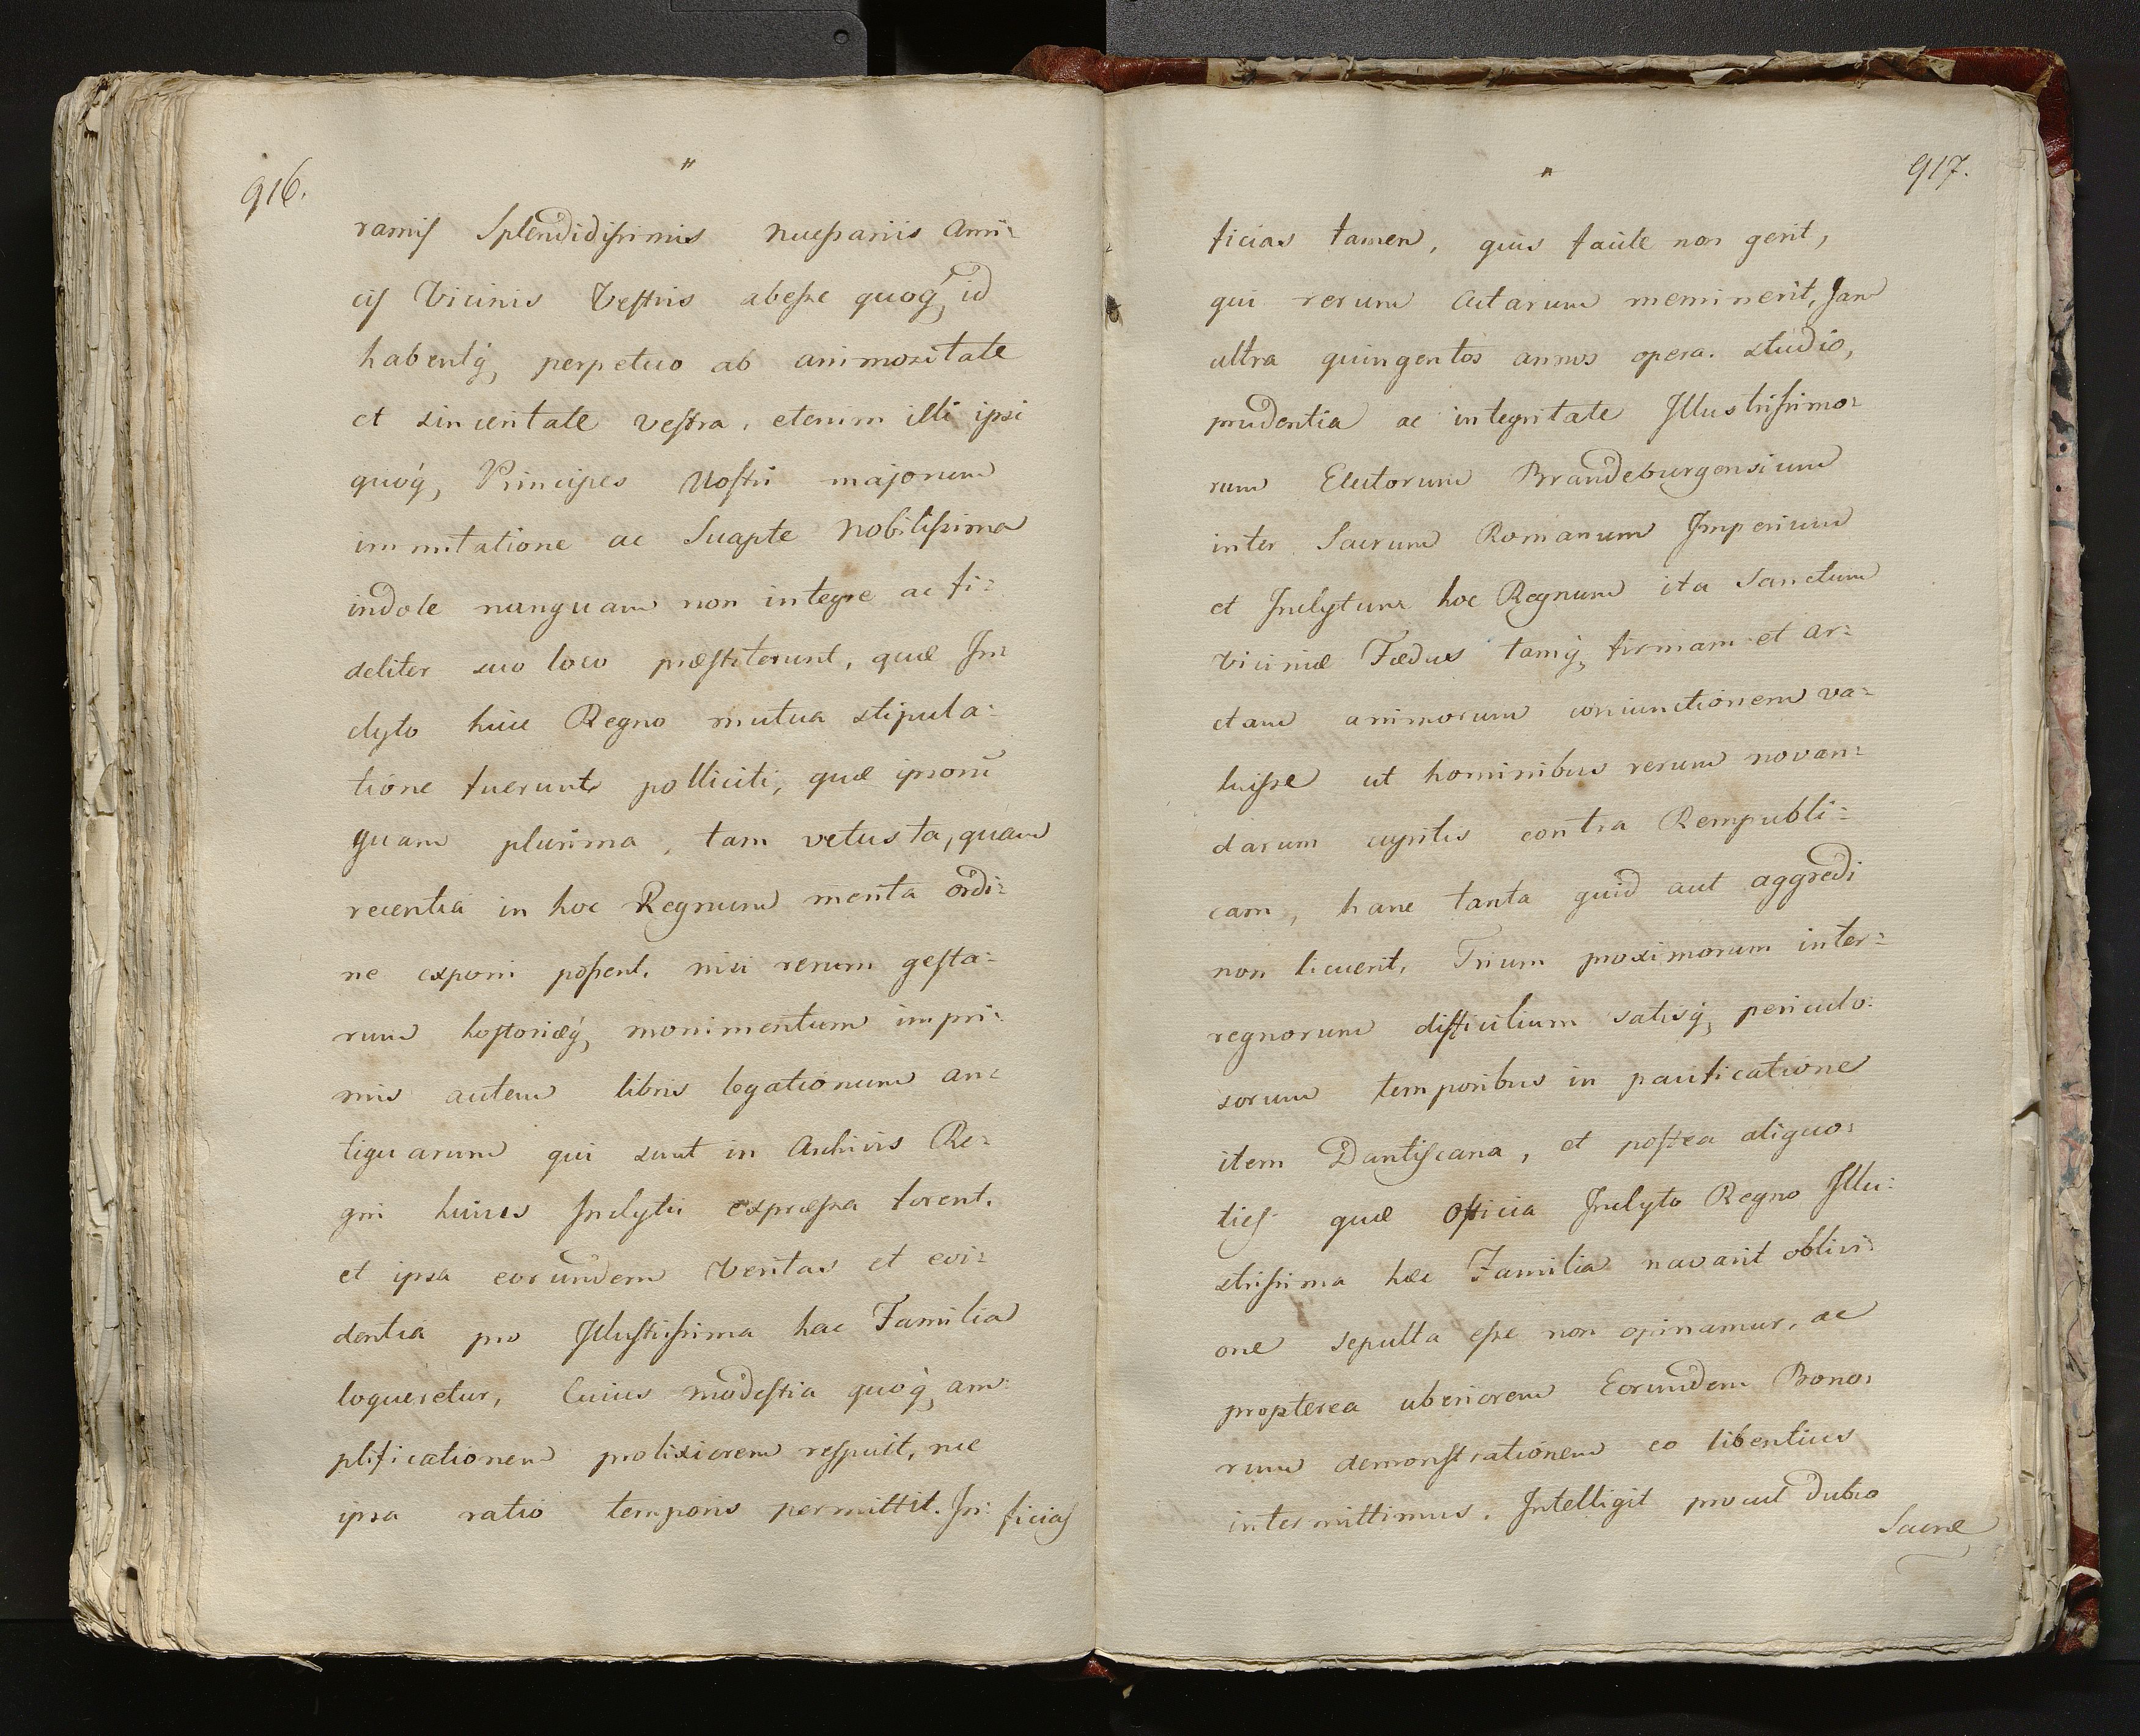 916.
"
ramis Splendidissimis nuessariis ami:
cis Vicinis Vestris abesse quoq, id
habentq, perpetuo ab animositate
et sinceritate vestra, etenim illi ipsi
quoq, Principes Nostri majorum
immitatione ac Suapte Nobilissima
indole nunquam non integre ac fi:
deliter suo loco præstiterunt, quæ In:
clyto huic Regno mutua stipula:
tione fuerunt polliciti, quæ ipsorū
quam plurima, tam vetusta, quam
recentia in hoc Regnum merita ordi:
ne exponi possent, nisi rerum gesta:
rum hostoriæq, monimentum impri:
mis autem libris legationum an:
tiquarum qui sunt in Archivis Re:
gni huius Inclyti expræssa forent,
et ipsa eorumdem veritas et evi:
dentia pro Illustrissima hac Familia
loqueretur, Cuius modestia quoq, am:
plificationem prolixiorem respuit, nec
ipsa ratio temporis permittit. In: ficias
"
917.
ficias tamen, quis facile non gerit,
qui rerum Actarum meminerit, Jam
ultra quingentos annos opera. studio,
prudentia ac integritate Illustrissimo:
rum Electorum Brandeburgensium
inter Sacrum Romanum Imperium
et Inclytum hoc Regnum ita Sanctum
Viciniæ Fædus tamq, firmam et ar:
ctam animorum coniunctionem va:
luisse ut hominibus rerum novan:
darum cupitis contra Rempubli:
cam, hanc tanta quid aut aggredi
non licuerit, Trium proximorum inter:
regnorum difficilium satisq, periculo:
sorum temporibus in pacificatione
item Dantiscana, et postea aliquo:
ties quæ Officia Inclyto Regno Illu:
strissima hæc Familia navarit oblivi:
one sepulta esse non opinamur, ac
propterea uberiorem Eorumdem Bono:
rum demonstrationem eo libentius
intermittimus. Intelligit procul dubio
Sacræ